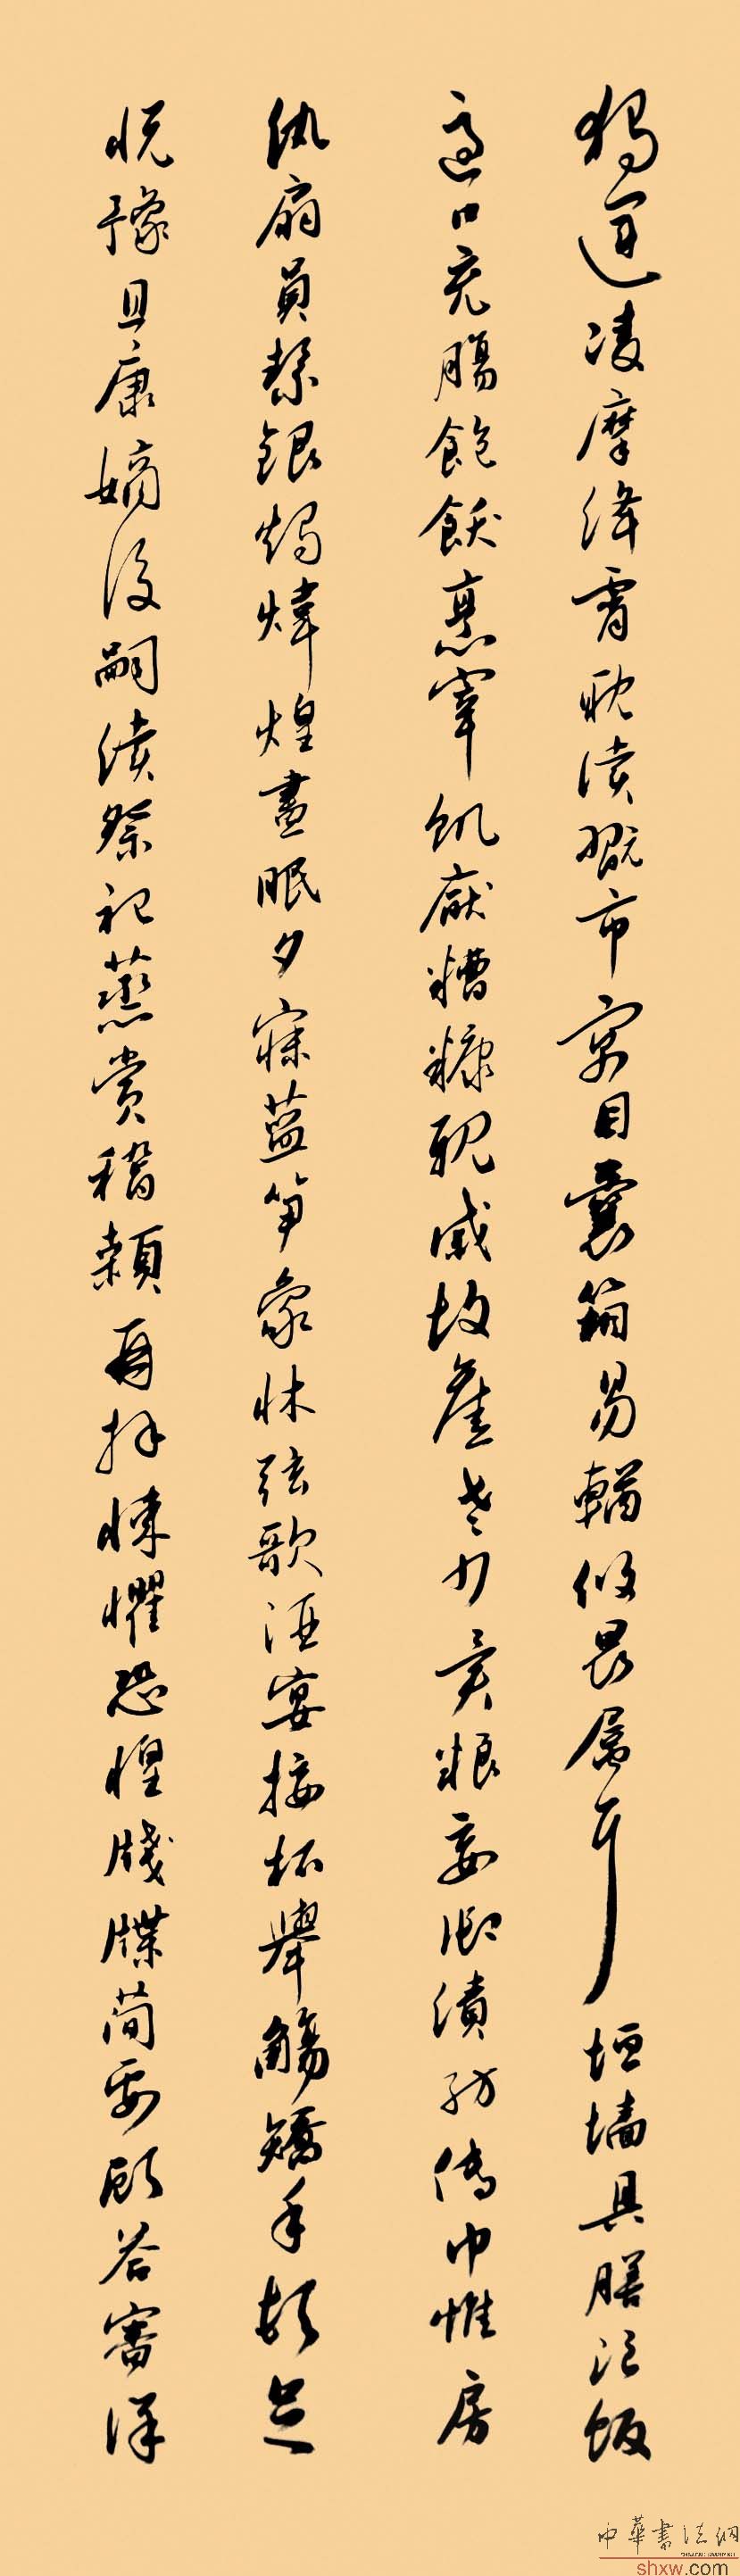 獨運凌摩絳霄耽讀翫市寓目囊箱易輶攸畏屬耳垣墻具膳飡飯
適口充腸飽飫烹宰飢厭糟糠親戚故舊老少異粮妾御績紡侍巾帷房
紈扇員絜銀燭煒煌晝眠夕寐藍笋象牀弦歌酒宴接杯舉觴矯手頓足
悅豫且康嫡後嗣續祭祀蒸賞稽顙再拜悚懼恐惶牋牒簡要顧答審詳
中華書法網
shxw.com